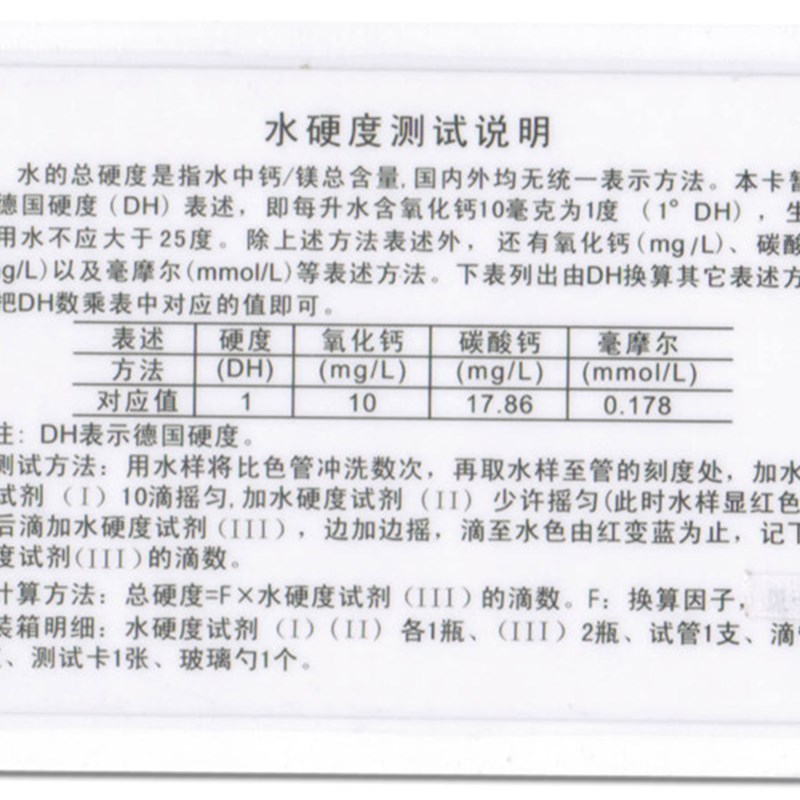 水硬度测试说明
水的总硬度是指水中钙/镁总含量,国内外均无统一表示方法。本卡暂
德国硬度(DH)表述，即每升水含氧化钙10毫克为1度 (1° DH)，生
用水不应大于25度。除上述方法表述外，还有氧化钙(mg/L)、碳酸
g/L)以及毫摩尔(mmol/L)等表述方法。下表列出由DH换算其它表述方
把DH数乘表中对应的值即可。
表述 硬度 氧化钙 碳酸钙 毫摩尔
方法 (DH) (mg/L) (mg/L) (mmol/L)
对应值 1 10 17.86 0.178
注：DH表示德国硬度。
测试方法：用水样将比色管冲洗数次，再取水样至管的刻度处，加水
试剂（I）10滴摇匀,加水硬度试剂（II）少许摇匀(此时水样显红色
后滴加水硬度试剂（III），边加边摇，滴至水色由红变蓝为止，记下
度试剂(III)的滴数。
计算方法：总硬度=F×水硬度试剂（III）的滴数。F：换算因子，
装箱明细：水硬度试剂（I）(II）各1瓶、（III）2瓶、试管1支、滴
、测试卡1张、玻璃勺1个。